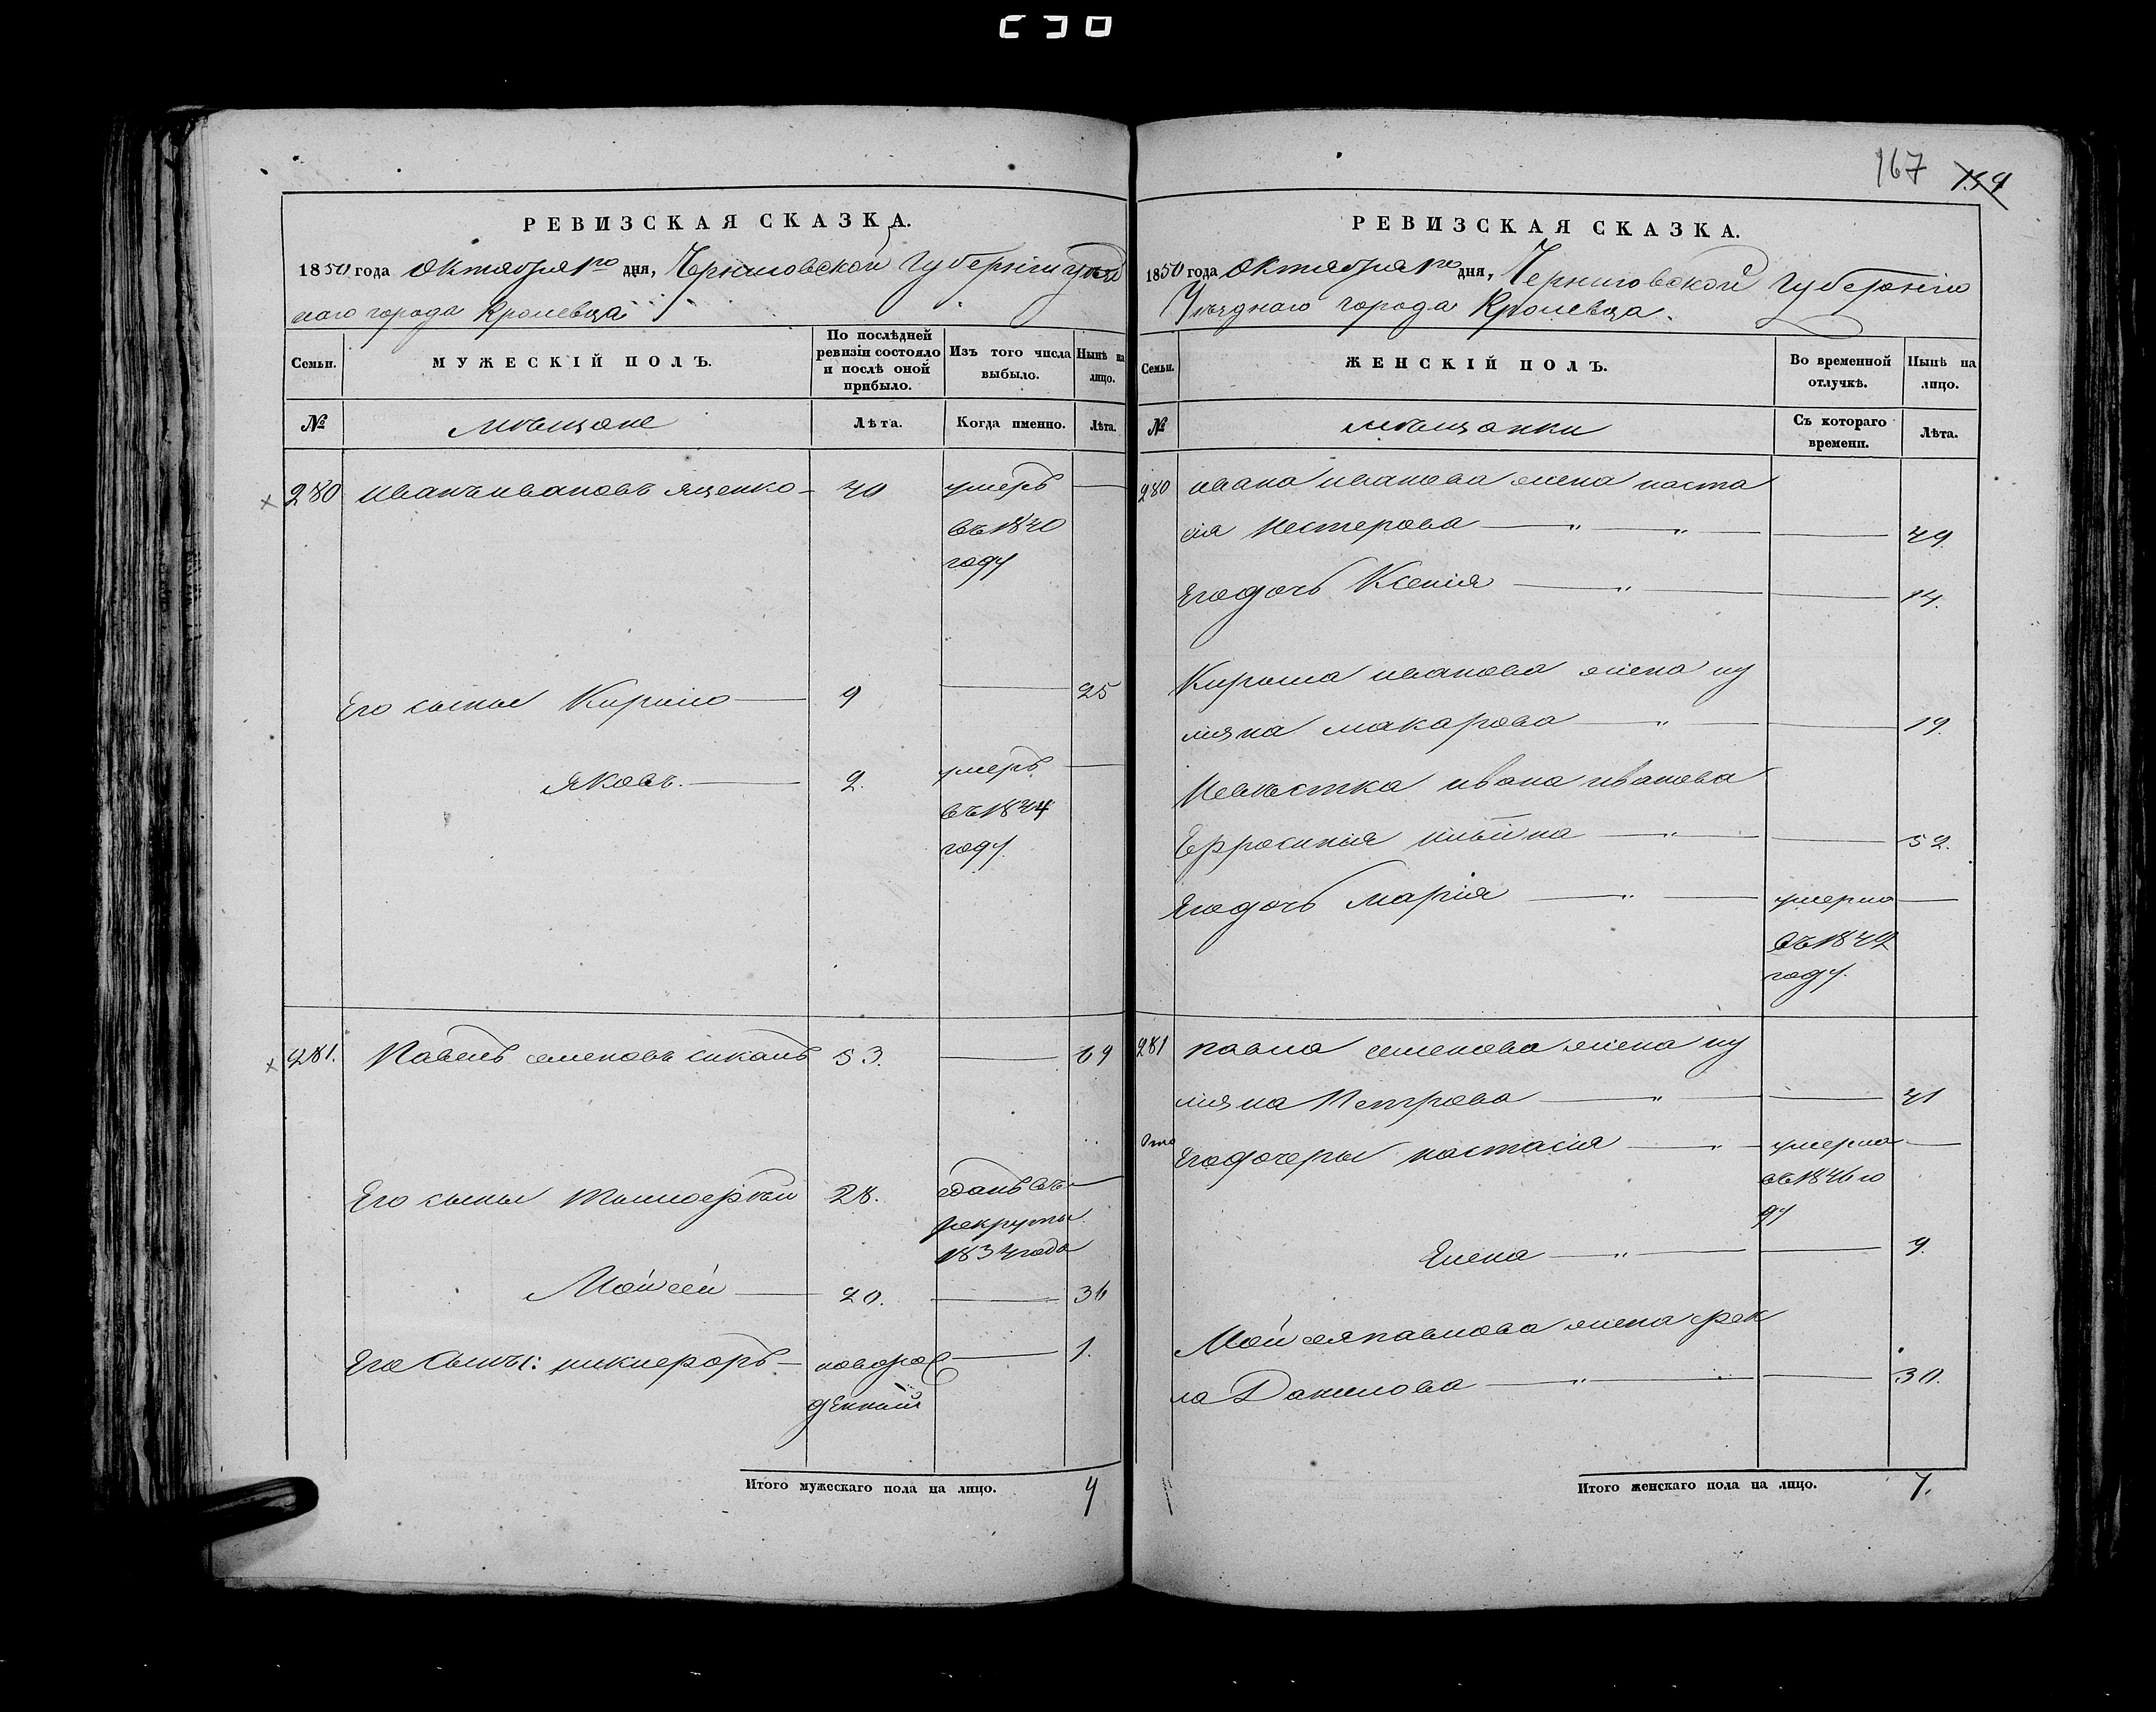 167 159
РЕВИЗСКАЯ СКАЗКА.
1850 года Октября 1го дня, Черниговской Губернии уѣзд
наго города Кролевца
Семьи. МУЖЕСКІЙ ПОЛЪ. По послѣдней ревизіи состояло и послѣ оной прибыло. Изъ того числа выбыло. Нынѣ на лицо.
№ мѣщане Лѣта. Когда именно. Лѣта.
280 иванъ ивановъ яценко 40 умеръ
въ 1840
году
Его сыны Кирило 9 25
яковъ. 2. умеръ
въ 1844
году
281. Павелъ семеновъ сикалъ 53. 69
Его сыны Тимофѣй 28. сданъ въ
рекруты
1834 года
Мойсей 20. 36
Его Сынъ: никифоръ новорож 1.
денный
Итого мужескаго пола на лицо. 4
РЕВИЗСКАЯ СКАЗКА.
1850 года Октября 1го дня, Черниговской Губернии
Уѣзднаго города Кролевца.
Семьи. ЖЕНСКІЙ ПОЛЪ. Во временной отлучкѣ. Нынѣ на лицо.
№ мѣщанки Съ котораго времени. Лѣта.
280 ивана иванова жена наста
сія Нестерова 49.
Его дочь Ксенія 14.
Кирила иванова жена иу
лияна макарова 19.
Невѣстка ивана иванова
Ефросинія ильина 52.
Его дочь марія умерла
въ 1842
году.
281 павла семенова жена иу
лияна Петрова 41
Его дочеры настасія умерла
въ 1846 го
ду
Елена 9.
Мойсея павлова жена фек
ла Данилова 30.
Итого женскаго пола на лицо. 7.